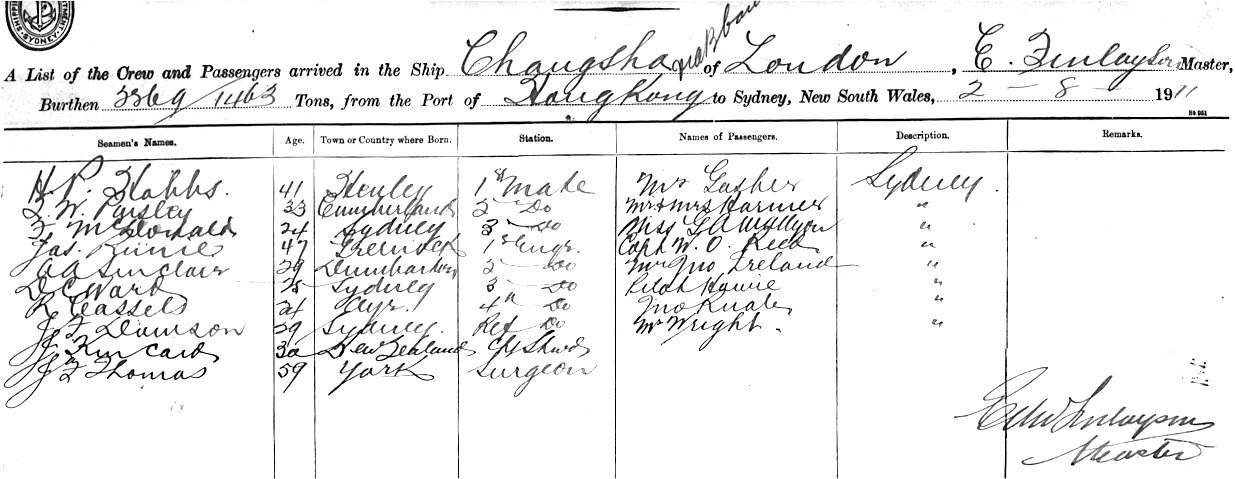 SYDNEY
A List of the Crew and Passengers arrived in the Ship Changsha of London, E. Finlayson Master,
Burthen 2269/1463 Tons, from the Port of Hong Kong to Sydney, New South Wales, 2-8-1911
Seamen's Names. Age. Town or Country where Born. Station. Names of Passengers. Description. Remarks.
Hobbs. 41 Henley 1st Mate Mrs Sydney.
33 Cumberland 2 Do Mr & Mrs Harmer "
McDonald 24 Sydney 3 Do Miss "
Jas. Rennie 47 Greenock 1st Engr. Capt W. O. Reed "
Sinclair 29 Dumbarton 2 Do Mr Jno Ireland "
D C Ward 25 Sydney 3 Do Pilot "
R Cassels 24 Ayr. 4th Do Jno "
29 Sydney. Ref Do Mr Wright. "
J Kincard 30 New Zealand Cf Stwd
Thomas 59 York Surgeon
Finlayson
Master